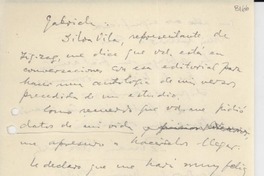 Gabriela:
Silva Vila, representante de
Zigzag, me dice que vd. está en
conversaciones con su editorial para
hacer una antología de mis versos
precedida de un estudio.
Como recuerdo que vd. me pidió
datos de mi vida
me apresuro a hacérselos llegar.
Le declaro que me hará muy feliz